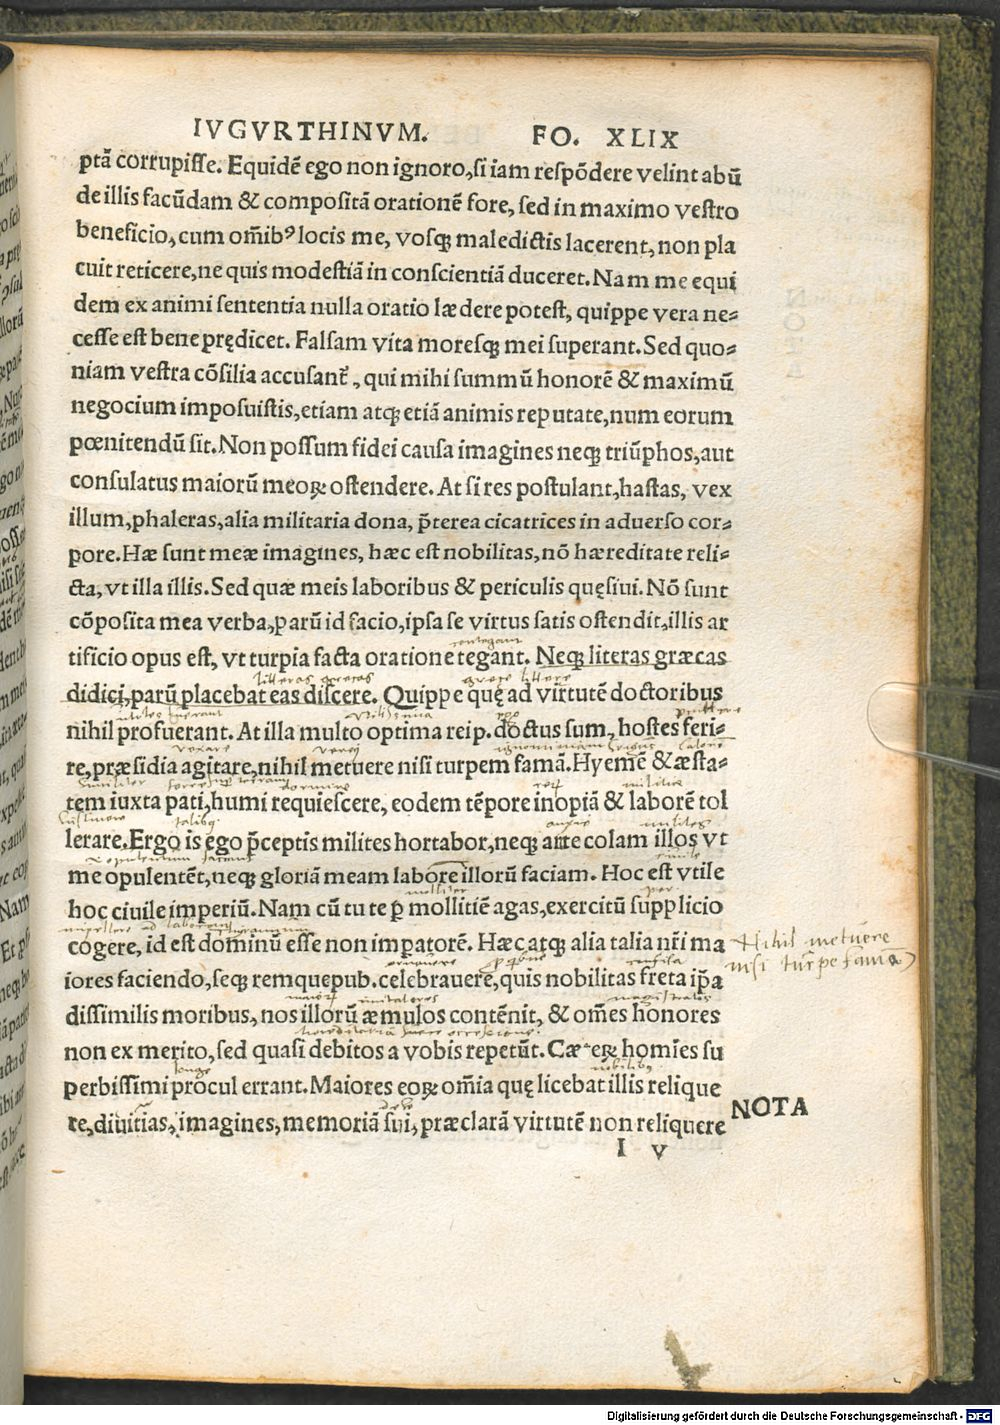 IVGVRTHINVM. FO. XLIX
ptā corrupisse. Equidē ego non ignoro, si iam respōdere velint abū
de illis facūdam & compositā orationē fore, sed in maximo vestro
beneficio, cum om̄ibꝰ locis me, vosqꝫ maledictis lacerent, non pla
cuit reticere, ne quis modestiā in conscientiā duceret. Nam me equi
dem ex animi sententia nulla oratio lædere potest, quippe vera ne⸗
cesse est bene prędicet. Falsam vita moresqꝫ mei superant. Sed quo⸗
niam vestra cōsilia accusant᷑, qui mihi summū honorē & maximū
negocium imposuistis, etiam atqꝫ etiā animis reputate, num eorum
pœnitendū sit. Non possum fidei causa imagines neqꝫ triūphos, aut
consulatus maiorū meoꝝ ostendere. At si res postulant, hastas, vex
illum, phaleras, alia militaria dona, p̄terea cicatrices in aduerso cor⸗
pore. Hæ sunt meæ imagines, hæc est nobilitas, nō hæreditate reli⸗
cta, vt illa illis. Sed quæ meis laboribus & periculis quęsiui. Nō sunt
cōposita mea verba, parū id facio, ipsa se virtus satis ostendit, illis ar
contegant
tificio opus est, vt turpia facta oratione tegant. Neqꝫ literas græcas
litteras grecas grece littere
didici, parū placebat eas discere. Quippe quę ad virtutē doctoribus
nihil profuerant. At illa multo optima reip. doctus sum, hostes feri⸗
vexare
re, præsidia agitare, nihil metuere nisi turpem famā. Hyemē & æsta⸗
similiter dormire
tem iuxta pati, humi requiescere, eodem tēpore inopiā & laborē tol
sustinere talibꝫ milites
lerare. Ergo is ego p̄ceptis milites hortabor, neqꝫ arte colam illos vt
me opulentēt, neqꝫ gloriā meam labore illorū faciam. Hoc est vtile
molliter
hoc ciuile imperiū. Nam cū tu te ꝑ mollitiē agas, exercitū supplicio
cogere, id est dominū esse non imꝑatorē. Hæc atqꝫ alia talia nr̄i ma
Nihil metuere
nisi turpe famā
iores faciendo, seqꝫ remquepub. celebrauere, quis nobilitas freta ip̄a
maiorꝝ imitatores magistratus
dissimilis moribus, nos illorū æmulos contēnit, & om̄es honores
non ex merito, sed quasi debitos a vobis repetūt. Cæteꝝ homīes su
longe nobilibꝰ
perbissimi procul errant. Maiores eoꝝ om̄ia quę licebat illis relique
re, diuitias, imagines, memoriā sui, præclarā virtutē non reliquere
NOTA
I v
Digitalisierung gefördert durch die Deutsche Forschungsgemeinschaft - DFG